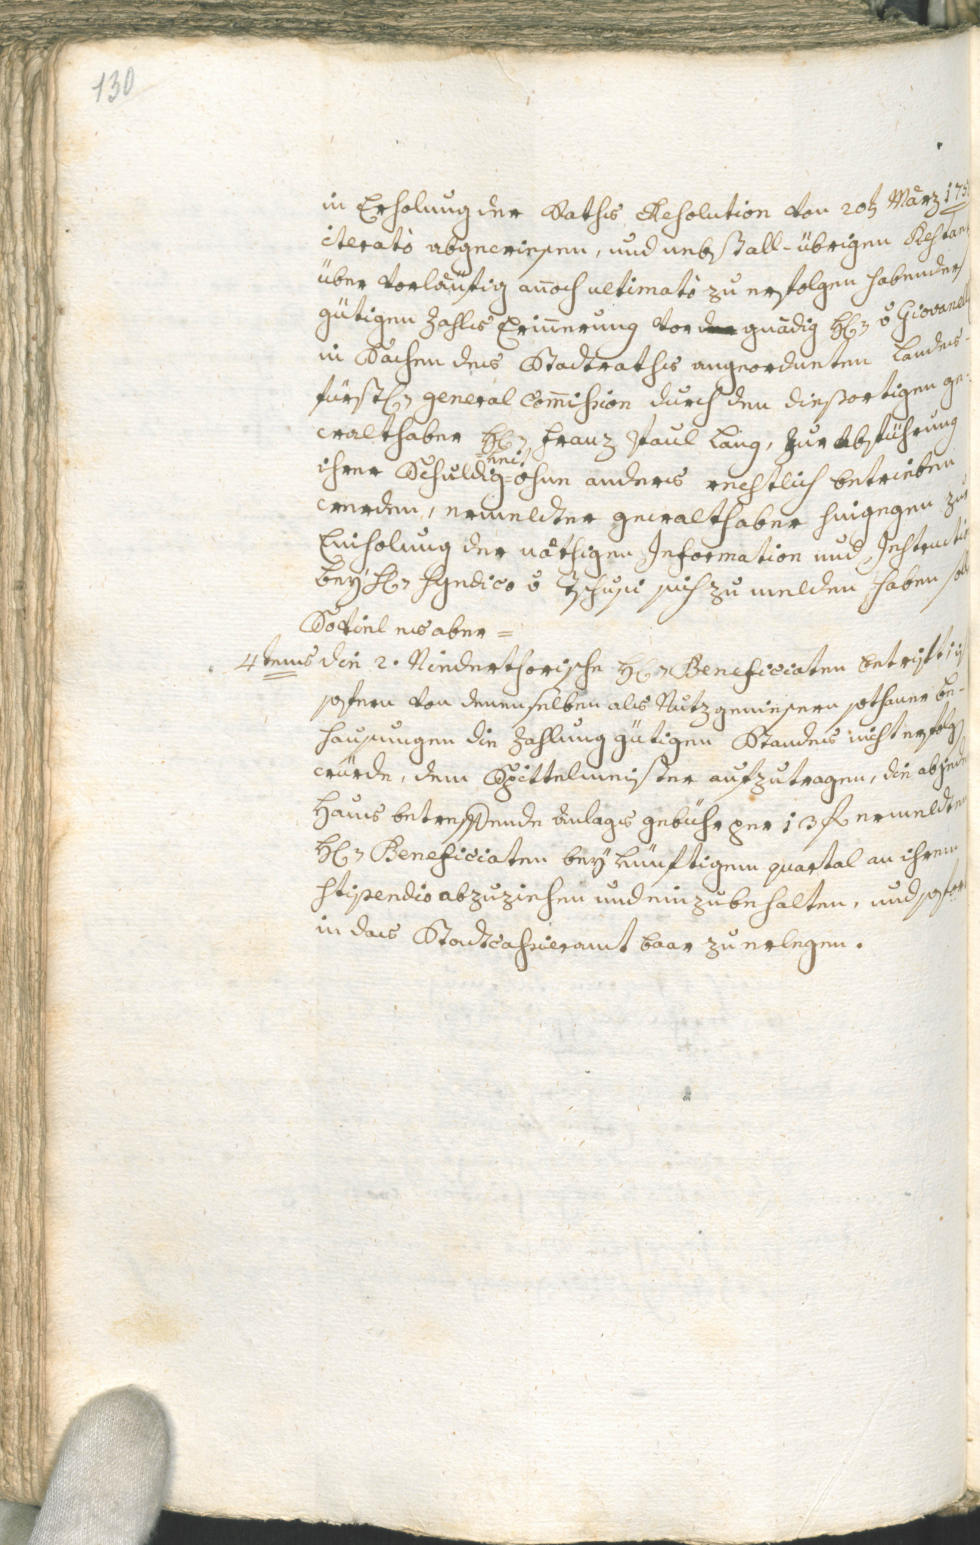 130
in Erholung der Raths Resolution von 20t März 175
iterato abgewiesen, und nebst all-übrigen Restan
über vorläufig annoch ultimato zu erfolgen habender
gütigen Zahls Erinnerung vor gnädig H. v Giovanell
in Sachen des Stadtraths angeordneten Landes-
fürstl. general Commission durch den diesortigen ge-
walthaber H. Franz Paul Lang, zur Abführung
ihrer Schuldigkeit ohne anders rechtlich betrieben
werden, ermeldter gewalthaber hingegen zu
Einholung der nöthigen Information und Instructi
bey H. Syndico v Tschusi sich zu melden haben soll
Soviel es aber =
4tens die 2. Niederthorische H. Beneficiaten betrifft, ist
sofern von denenselben als Nutzgeniesern sothaner be-
hausungen die Zahlung gütigen Standes nicht erfolg
würde, dem Spittelmeister aufzutragen, die ab jede
Haus betreffende Anlags gebühr per 13 f ermeldten
H. Beneficiaten bey künftigem quartal an ihrem
stipendio abzuziehen und einzubehalten, und sofor
in das Stadtcassieramt baar zu erlegen.